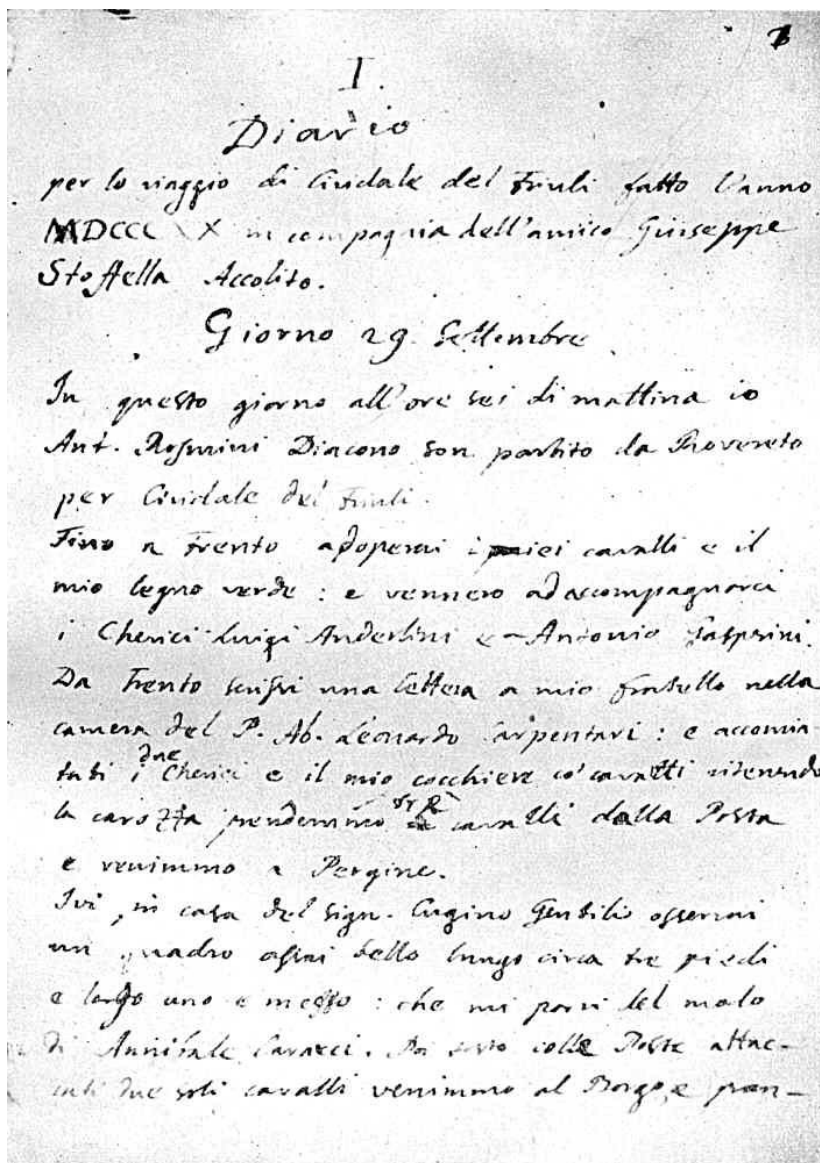 I.
Diario
per lo viaggio di Cividale del Friuli fatto l'anno
MDCCCXX in compagnia dell'amico Giuseppe
Stoffella Accolito.
Giorno 29. Settembre
In questo giorno all'ore sei di mattina io
Ant. Rosmini Diacono son partito da Rovereto
per Cividale del Friuli.
Fino a Trento adoperai i miei cavalli e il
mio legno verde : e vennero ad accompagnarci
i Cherici Luigi Anderlini e Antonio Gasperini.
Da Trento scrissi una lettera a mio fratello nella
camera del P. Ab. Leonardo Carpentari : e accomia-
tati i due Cherici e il mio cocchiere co' cavalli ritenendo
la carozza prendemmo cavalli dalla Posta
e venimmo a Pergine.
Ivi in casa del Sign. Cugino Gentili osservai
un quadro assai bello lungo circa tre piedi
e largo uno e mezzo : che mi parve del modo
di Annibale Caracci. Poi colle Poste attac-
cati due soli cavalli venimmo al Borgo, e pran-